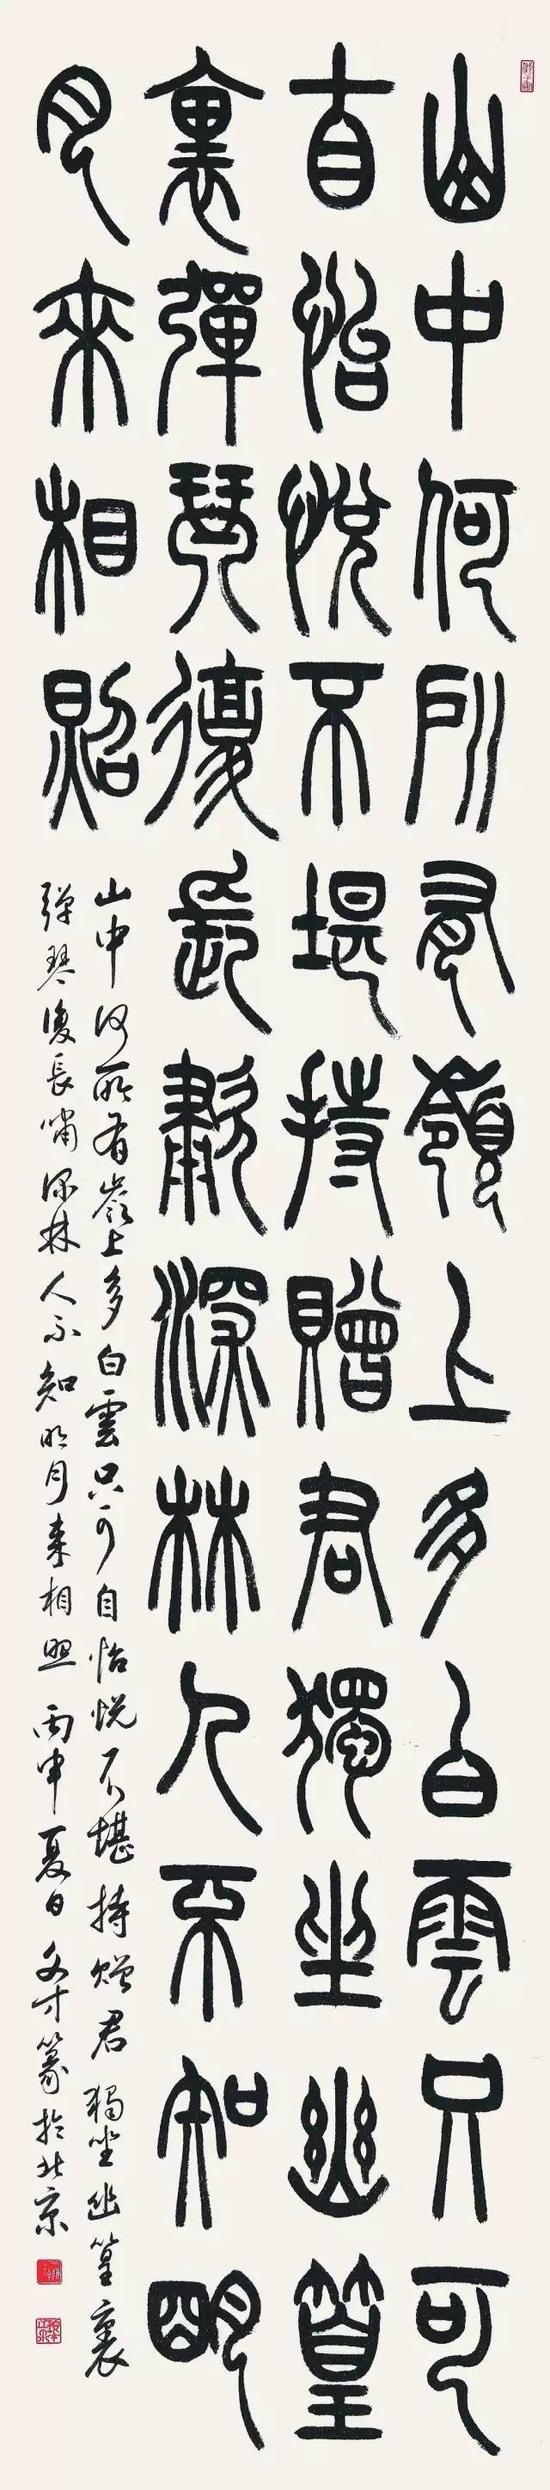 山中何所有嶺上多白雲只可
自怡悅不堪持贈君獨坐幽篁
裏彈琴復長嘯深林人不知明
月來相照
山中何所有嶺上多白雲只可自怡悦不堪持贈君獨坐幽篁裏
彈琴復長嘯深林人不知明月來相照 丙申夏日 文才篆於北京